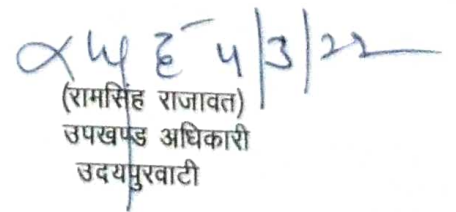 4/3/22
(रामसिंह राजावत)
उपखण्ड अधिकारी
उदयपुरवाटी